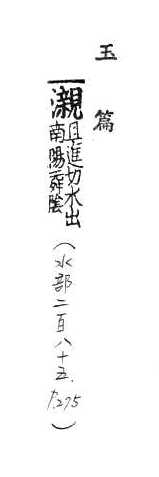 玉篇
瀙且進切水出南陽舞陰（水部二百八十五, P.275）